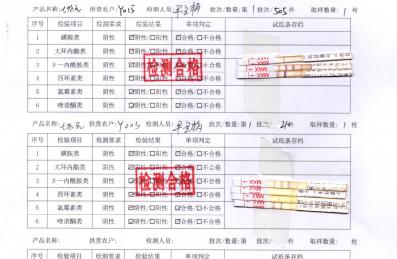 产品名称: 供货农户: Y015 检测人员: 批次/数量: 第 1 批次/ 505 件 取样数量: 1 枚
序号 检验项目 检测要求 检验结果 单项判定 试纸条存档
1 磺胺类 阴性 ☑阴性/☐阳性 ☑合格/☐不合格
2 大环内酯类 阴性 ☑阴性/☐阳性 ☑合格/☐不合格
3 β一内酰胺类 阴性 ☑阴性/☐阳性 ☑合格/☐不合格
4 四环素类 阴性 ☑阴性/☐阳性 ☑合格/☐不合格
5 氯霉素类 阴性 ☑阴性/☐阳性 ☑合格/☐不合格
6 喹诺酮类 阴性 ☑阴性/☐阳性 ☑合格/☐不合格
检测合格
MAX
MAX
产品名称: 供货农户: Y005 检测人员: 批次/数量: 第 1 批次/ 件 取样数量: 1 枚
序号 检验项目 检测要求 检验结果 单项判定 试纸条存档
1 磺胺类 阴性 ☑阴性/☐阳性 ☑合格/☐不合格
2 大环内酯类 阴性 ☑阴性/☐阳性 ☑合格/☐不合格
3 β一内酰胺类 阴性 ☑阴性/☐阳性 ☑合格/☐不合格
4 四环素类 阴性 ☑阴性/☐阳性 ☑合格/☐不合格
5 氯霉素类 阴性 ☑阴性/☐阳性 ☑合格/☐不合格
6 喹诺酮类 阴性 ☑阴性/☐阳性 ☑合格/☐不合格
检测合格
MAX
MAX
产品名称: 供货农户: 检测人员: 批次/数量: 第 批次/ 件 取样数量: 枚
序号 检验项目 检测要求 检验结果 单项判定 试纸条存档